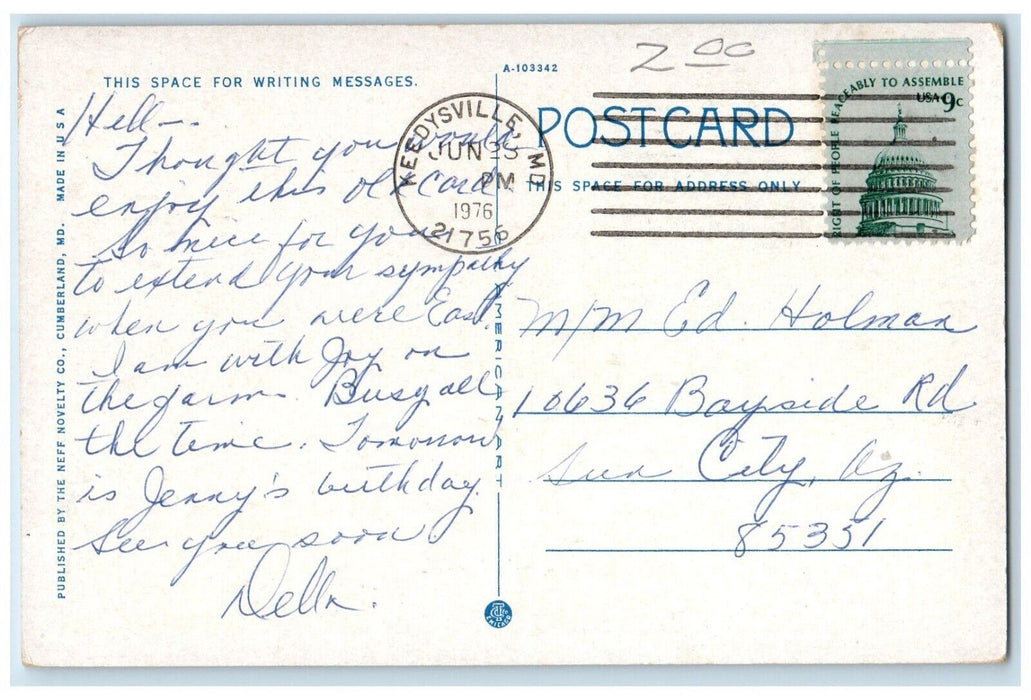 THIS SPACE FOR WRITING MESSAGES.
Hell—.
Thought you would
enjoy this old card.
So nice for you
to extend your sympathy
when you were East.
I am with Joy on
the farm. Busy all
the time. Tomorrow
is Jenny's birthday.
See you soon
Della.
PUBLISHED BY THE NEFF NOVELTY CO., CUMBERLAND, MD. MADE IN U S A
A-103342
AMERICAN ART
2 00
POST CARD
THIS SPACE FOR ADDRESS ONLY
KEEDYSVILLE, MD
JUN 23
PM
1976
21756
RIGHT OF PEOPLE PEACEABLY TO ASSEMBLE
USA 9c
M/M Ed. Holman
10636 Bayside Rd.
Sun City, Az.
85351
CHICAGO